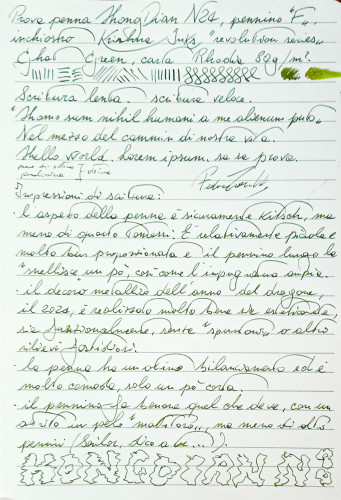 Prova penna HongDian N24, pennino "F",
inchiostro Krishna Inks "revolution series"
Ghat Green, carta Rhodia 80g/m².
Scrittura lenta. scrittura veloce.
"Homo sum nihil humani a me alienum puto"
Nel mezzo del cammin di nostra vita.
Hello world, lorem ipsum. sa sa prova.
Impressioni di scrittura:
· l'aspetto della penna è sicuramente kitsch, ma
meno di quanto temessi. È relativamente piccola e
molto ben proporzionata e il pennino lungo la
"snellisce" un pò, così come l'impugnatura ampia.
· il decoro metallico dell'anno del dragone,
il 2024, è realizzato molto bene sia esteticamente,
sia funzionalmente, senza "spuntoni" o altri
rilievi fastidiosi.
· la penna ha un ottimo bilanciamento ed è
molto comoda, solo un pò corta.
· il pennino fa benone quel che deve, con un
asetto un pelo "matitoso", ma meno di altri
pennini (Sailor, dico a te...).
HONGDIAN N